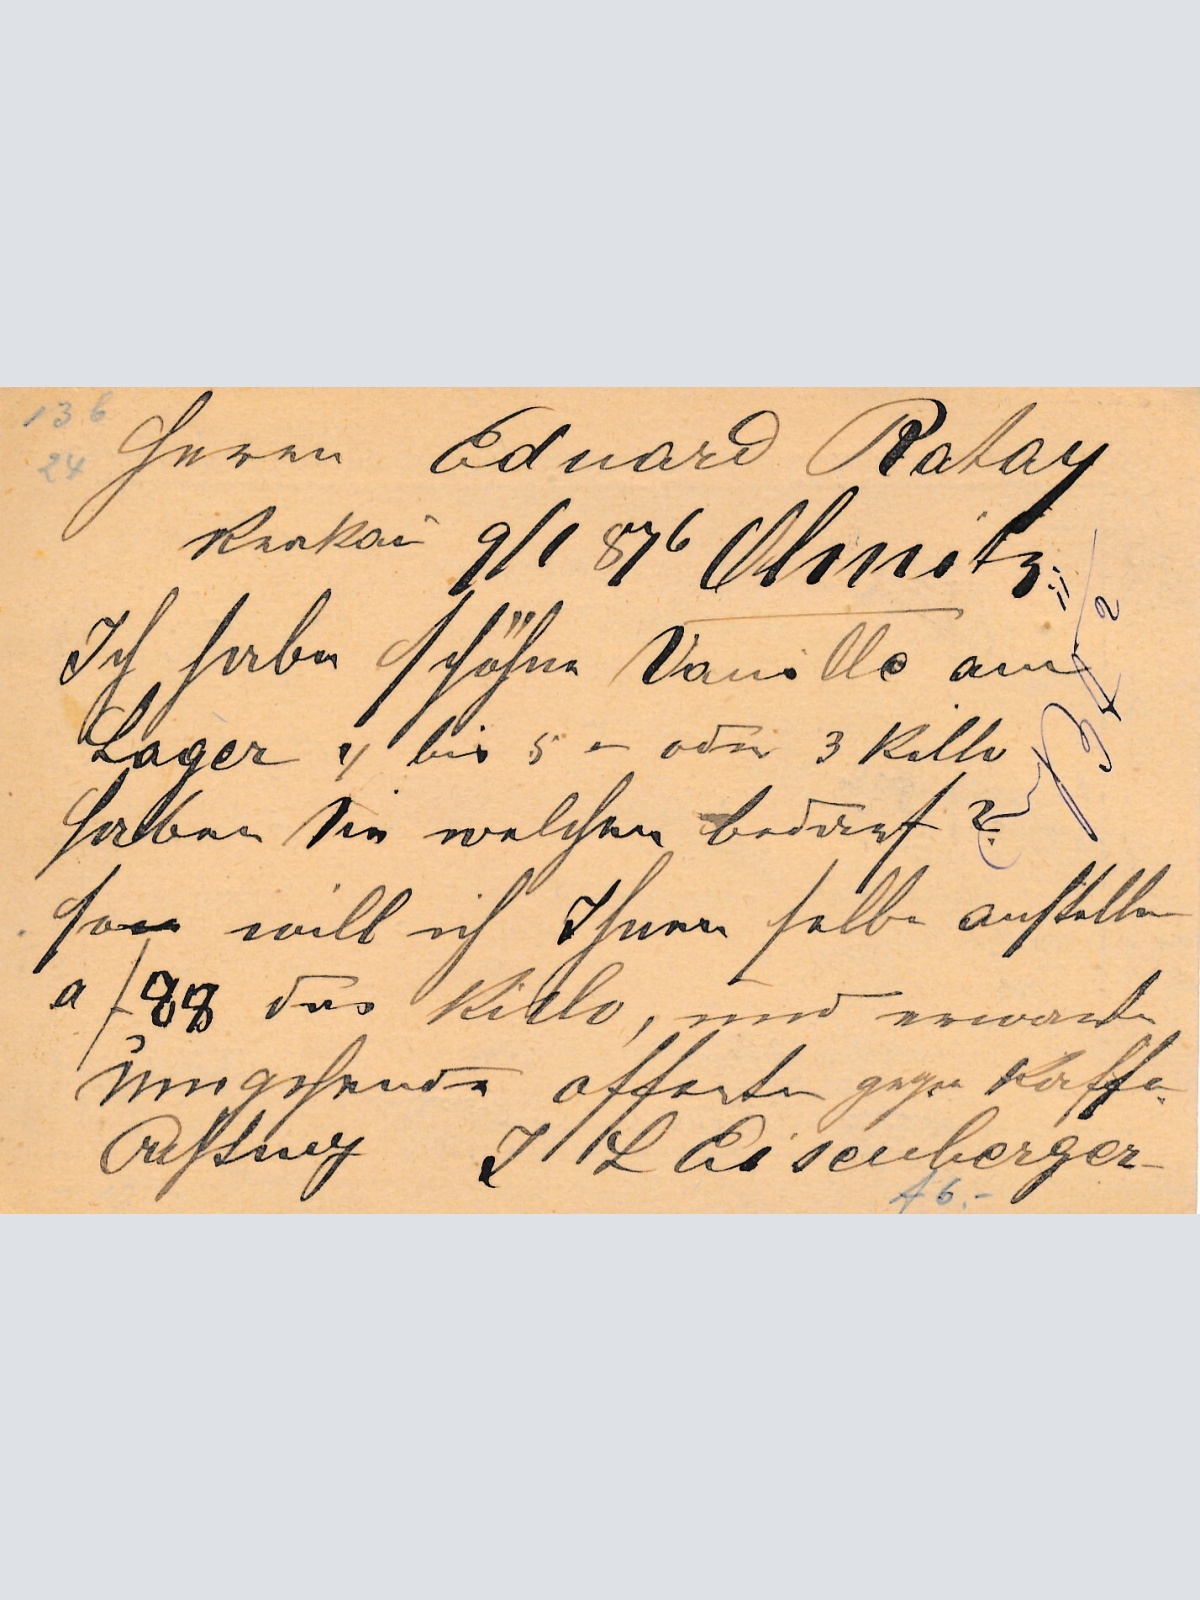 136
24
Herrn Eduard Ratay
Krakau 9/1 876 Olmütz
Ich habe schöhne Vanille am
Lager 4 bis 5 - oder 3 Killo
haben Sie welchen bedarf ?
so will ich Ihnen selbe anstellen
a f 88 das Killo, und erwarte
Umgehende offerten gegen Kaffe.
Achtung J L Eisenberger